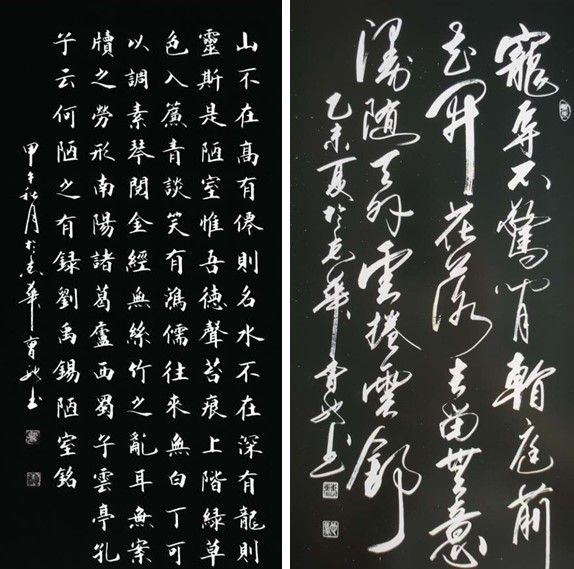 山不在高有僊則名水不在深有龍則
靈斯是陋室惟吾德馨苔痕上階綠草
色入簾青談笑有鴻儒往來無白丁可
以調素琴閱金經無絲竹之亂耳無案
牘之勞形南陽諸葛廬西蜀子雲亭孔
子云何陋之有録劉禹錫陋室銘
甲午秋月於京華書
寵辱不驚閒看庭前
花開花落去留無意
漫随天外雲捲雲舒
乙未夏於京華書